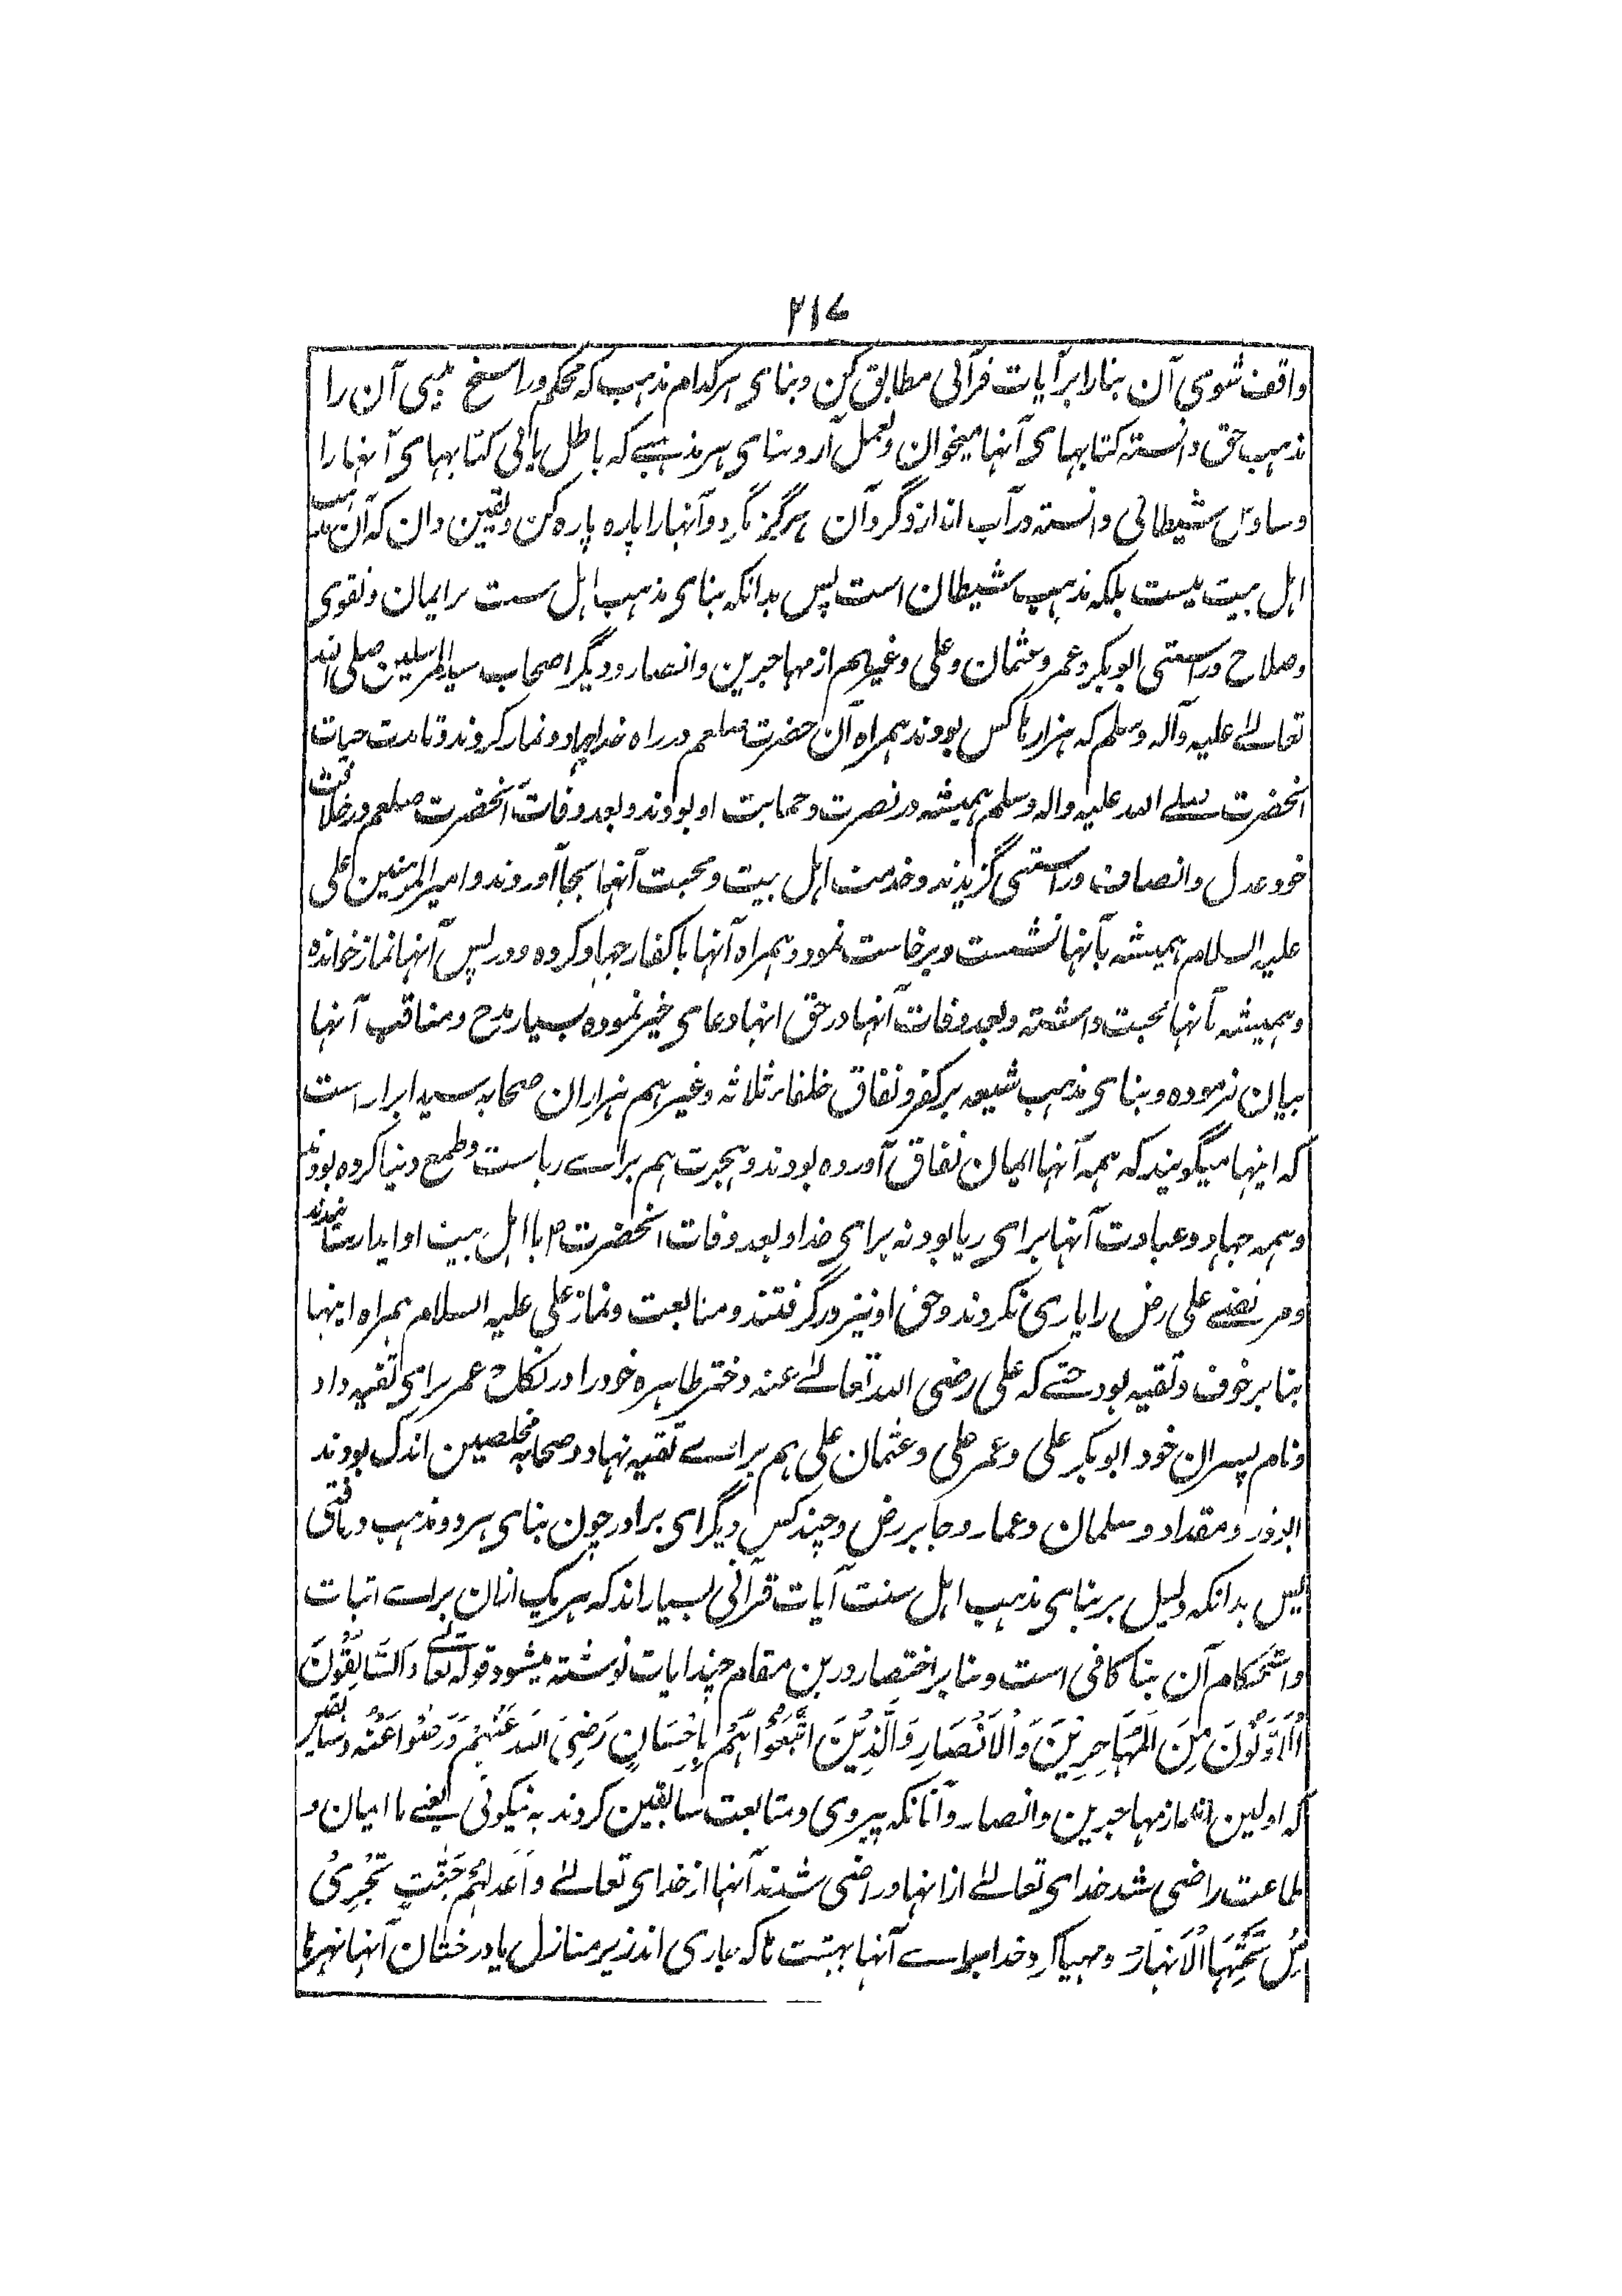 ۲۱۷
واقف شوی آن بنا را بر آیات قرآنی مطابق کن و بنای هر کدام مذهب که محکم و راسخ بینی آن را
مذهب حق دانسته کتابهای آنها میخوان و بعمل آر و بنای هر مذهبے که باطل یابی کتابهای آنها را
وساوس شیطانی دانسته در آب انداز و گرد آن هرگز مگرد و آنها را پاره پاره کن و یقین دان که آن مذهب
اهل بیت نیست بلکه مذهب شیطان است پس بدانکه بنای مذهب اهل سنت بر ایمان و تقوی
و صلاح و راستی ابوبکر و عمر و عثمان و علی و غیرهم از مهاجرین و انصار و دیگر اصحاب سید المرسلین صلی الله
تعالےٰ علیه وآله وسلم که هزارها کس بودند همراه آن حضرت صلعم در راه خدا جهاد و نماز کردند و تا مدت حیات
آنحضرت صلے الله علیه واله وسلم همیشه در نصرت و حمایت او بودند و بعد وفات آنحضرت صلعم در خلافت
خود عدل و انصاف و راستی گزیدند و خدمت اهل بیت و محبت آنها بجا آوردند و امیر المومنین علی
علیه السلام همیشه بآنها نشست و برخاست نمود و همراه آنها با کفار جهاد کرده و در پس آنها نماز خوانده
و همیشه بآنها محبت داشته و بعد وفات آنها در حق انها دعای خیر نموده بسیار مدح و مناقب آنها
بیان فرموده و بنای مذهب شیعه بر کفر و نفاق خلفاء ثلاثه و غیرهم هزاران صحابه سید ابرار است
که اینها میگویند که همه آنها ایمان نفاق آورده بودند و هجرت هم براے ریاست و طمع دنیا کرده بودند
و همه جهاد و عبادت آنها برای ریا بود نه برای خدا و بعد وفات آنحضرت ص با اهل بیت او ایدا رسانیدند
و مرتضے علی رض را یاری نکردند و حق او نیز در گرفتند و متابعت و نماز علی علیه السلام همراه اینها
بنابر خوف و تقیه بود حتے که علی رضی الله تعالےٰ عنه دختر طاهره خود را در نکاح عمر برای تقیه داد
و نام پسران خود ابوبکر علی و عمر علی و عثمان علی هم براے تقیه نهاد و صحابه مخلصین اندک بودند
ابوذر و مقداد و سلمان و عمار و جابر رض و چند کس دیگر ای برادر چون بنای هر دو مذهب دریافتی
پس بدانکه دلیل بر بنای مذهب اهل سنت آیات قرآنی بسیار اند که هر یک ازان براے اثبات
و استحکام آن بنا کافی است و بنا بر اختصار درین مقام چند ایات نوشته میشود قوله تعالے وَالسَّابِقُوْنَ
الْاَوَّلُوْنَ مِنَ الْمُهَاجِرِيْنَ وَالْاَنْصَارِ وَالَّذِيْنَ اتَّبَعُوْا هُمْ بِاِحْسَانٍ رَضِیَ اللهُ عَنْهُمْ وَرَضُوْا عَنْهُ و سابقین
که اولین اند از مهاجرین و انصار و آنانکه پیروی و متابعت سابقین کردند به نیکوئی یعنے با ایمان و
طاعت راضی شد خدای تعالےٰ از انها و راضی شدند آنها از خدای تعالےٰ وَاَعَدَّ لَهُمْ جَنّٰتٍ تَجْرِیْ
مِنْ تَحْتِهَا الْاَنْهَارُ و مهیا کرد خدا براے آنها بهشت ها که جاری اند زیر منازل یا درختان آنها نهرها